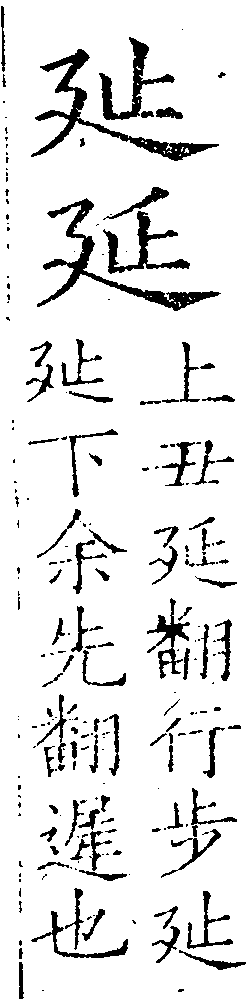 㢟延
上丑延翻行步㢟
㢟下余先翻遲也